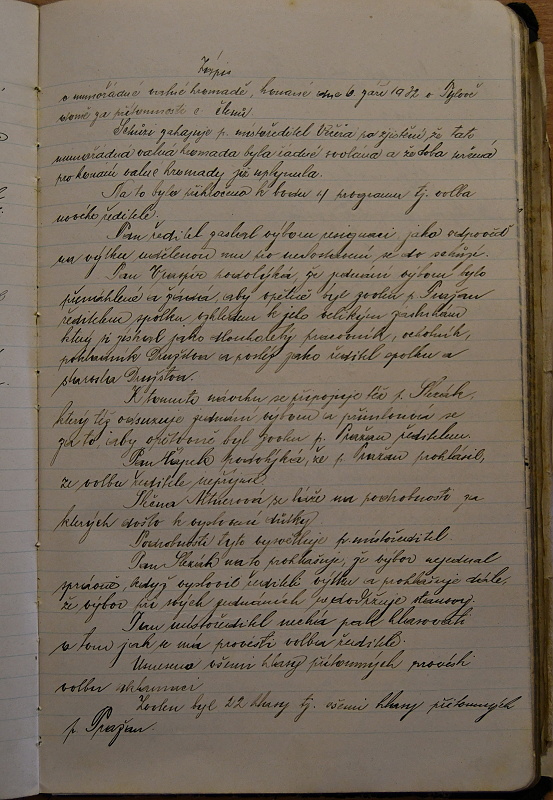 Zápis
o mimořádné valné hromadě, konané dne 6. září 1932 v Pylově
členů
Schůzi zahajuje p. místoředitel Včela po zjištění že tato
mimořádná valná hromada byla řádně svolána a že doba určená
pro konání valné hromady již uplynula.
Na to bylo přikročeno k bodu 4 programu tj. volba
nového ředitele.
Pan ředitel zaslal výboru resignaci, jako odpověď
na výtku udělenou mu pro nedostavení se do schůze.
Pan podotýká, že jednání výboru bylo
přenáhlené a žádá, aby opětně byl zvolen p. Pražan
ředitelem spolku, vzhledem k jeho velikým zásluhám
který si získal jako dlouholetý pracovník, ochotník,
pokladník Družstva a později jako ředitel spolku a
starosta Družstva.
K tomuto návrhu se připojuje též p. Slezák,
který též odsuzuje jednání výboru a přimlouvá se
za to, aby opětovně byl zvolen p. Pražan ředitelem.
Pan podotýká, že p. Pražan prohlásil,
že volbu ředitele nepřijme.
Slečna se táže na podrobnosti za
kterých došlo k vyslovení důtky.
Podrobnosti tyto vysvětluje p. místoředitel.
Pan Slezák na to prohlašuje, že výbor nejednal
správně, když vyslovil řediteli výtku a prohlašuje dále,
že výbor při svých jednáních nedodržuje stanovy.
Pan místoředitel nechá pak hlasovati
o tom jak se má provésti volba ředitele.
Usneseno všemi hlasy přítomných provésti
volbu aklamací.
Zvolen byl 22 hlasy tj. všemi hlasy přítomných
p. Pražan.